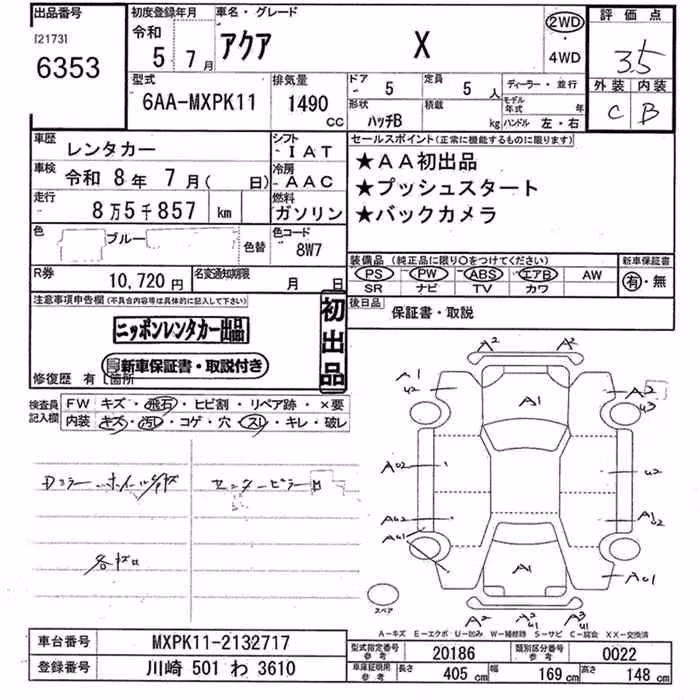 出品番号
[2173]
6353
初度登録年月
令和
5 年 7 月
車名・グレード
アクア X
2WD
4WD
評価点
3.5
外装 内装
C B
型式
6AA-MXPK11
排気量
1490 CC
ドア 5
形状 ハッチB
定員 5 人
積載 kg
ディーラー・並行
モデル年式 年
ハンドル 左・右
車歴 レンタカー
シフト IAT
車検 令和 8 年 7 月 ( 日)
冷房 AAC
走行 8 万 5 千 857 km
燃料 ガソリン
色 ブルー 色替
色コード 8W7
R券 10,720 円
名変通知期限 月 日
セールスポイント (正常に機能するものに限ります)
★AA初出品
★プッシュスタート
★バックカメラ
装備品 (純正品に限り○をつけてください)
PS PW ABS エアB AW
SR ナビ TV カワ
新車保証書
有・無
後日品 保証書・取説
注意事項申告欄 (不具合内容等は具体的に記入して下さい)
ニッポンレンタカー出品
新車保証書・取説付き
初出品
修復歴 有 [箇所
検査員記入欄
FW キズ・飛石・ヒビ割・リペア跡・×要
内装 キズ・汚レ・コゲ・穴・スレ・キレ・破レ
センターピラー
各キズ
A2 A2
A1 A1 A2
U2 U3
AU2 U2
AU2
AU1
A1 AU1
A2 A2 A3
U1
スペア
A-キズ E-エクボ U-凹み W-補修跡 S-サビ C-腐食 XX-交換済
車台番号 MXPK11-2132717
登録番号 川崎 501 わ 3610
型式指定番号 参考 20186
類別区分番号 参考 0022
車庫証明用 参考 長さ 405 cm 幅 169 cm 高さ 148 cm